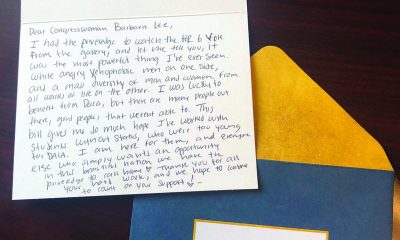 Dear Congresswoman Barbara Lee,
I had the priviledge to watch the HR 6 Vote
from the gallery, and let me tell you, it
was the most powerful thing I've ever seen.
White angry xenophobic men on one side,
and a mass diversity of men and women from
all walks of life on the other. I was lucky to
benefit from Daca, but there are many people out
there, good people, that werent able to. This
bill gives me so much hope. I've worked with
students without status, who were too young
for DACA. I am here for them, and everyone
else who simply wants an opportunity
in this beautiful nation we have the
priviledge to call home. Thank you for all
your hard work, and we hope to continue
to count on your support!